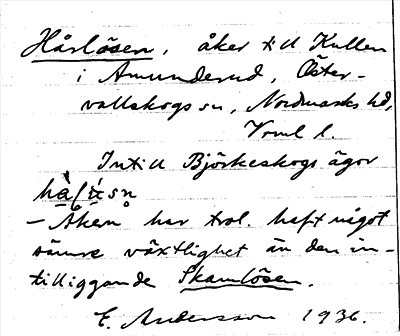 Hårlösen, åker till Kullen
i Amunderud, Öster-
vallskogs sn, Nordmarks hd,
Vrml l.
Intill Björkeskogs ägor
— Åkern har trol. haft något
sämre växtlighet än den in-
tilliggande Skamlösen.
E. Andersson 1936.